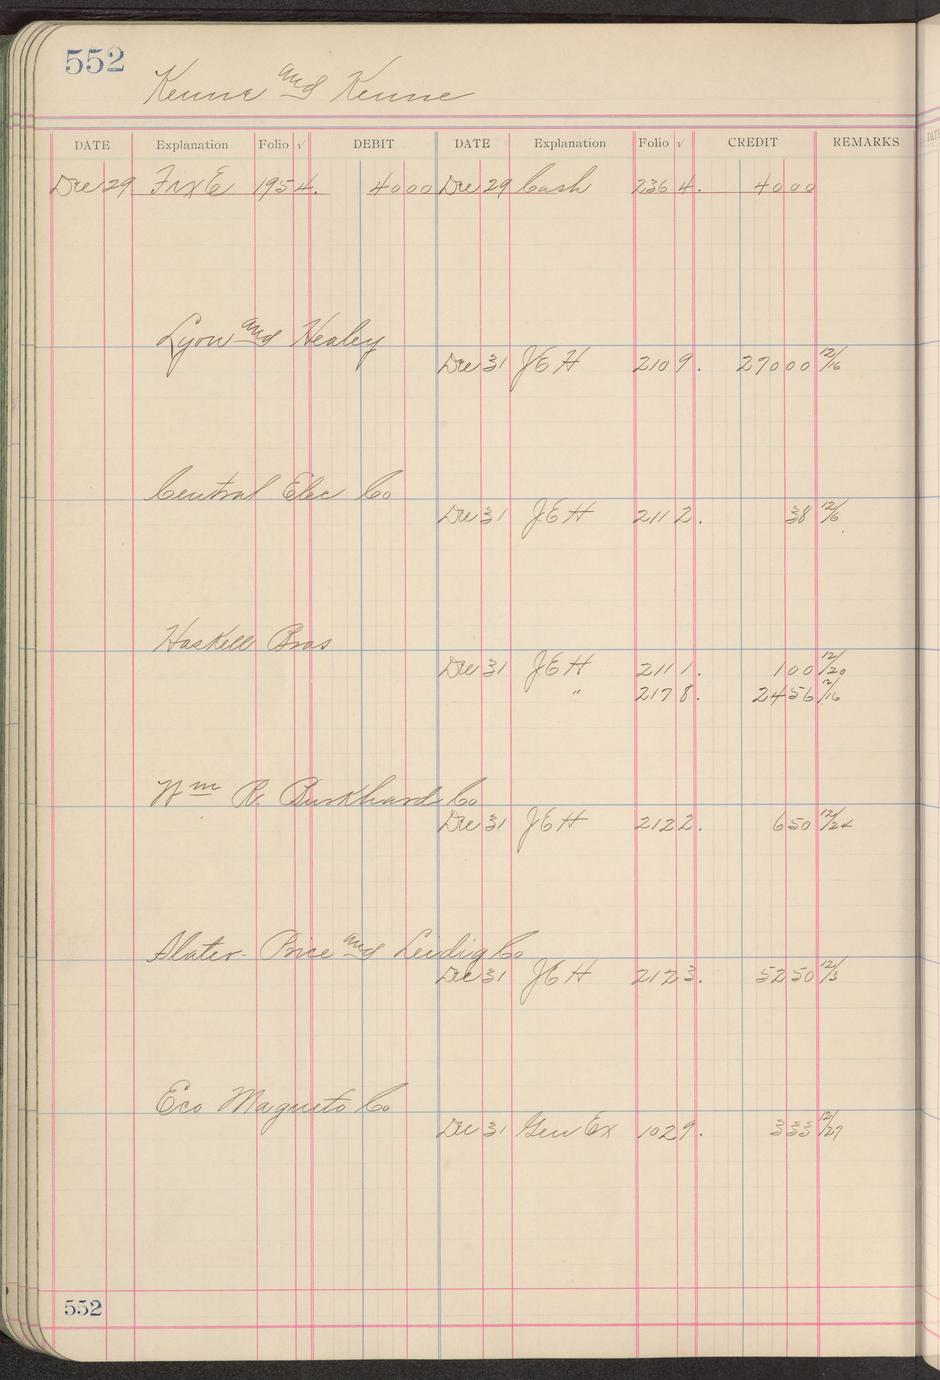 552
Keune and Keune
DATE Explanation Folio √ DEBIT DATE Explanation Folio √ CREDIT REMARKS
Dec 29 Fix E 195 4. 4000 Dec 29 Cash 236 4. 4000
Lyon and Healey
Dec 31 JEH 2109. 27000 12/16
Central Elec Co
Dec 31 JEH 2112. 38 12/6
Haskell Bros
Dec 31 JEH 2111. 100 12/20
" 2178. 2456 12/16
Wm R. Burkhard Co
Dec 31 JEH 2122. 650 12/24
Slater- Price and Leidig Co
Dec 31 JEH 2123. 5250 12/3
Eco Magneto Co
Dec 31 Gen Ex 1029. 333 12/27
552